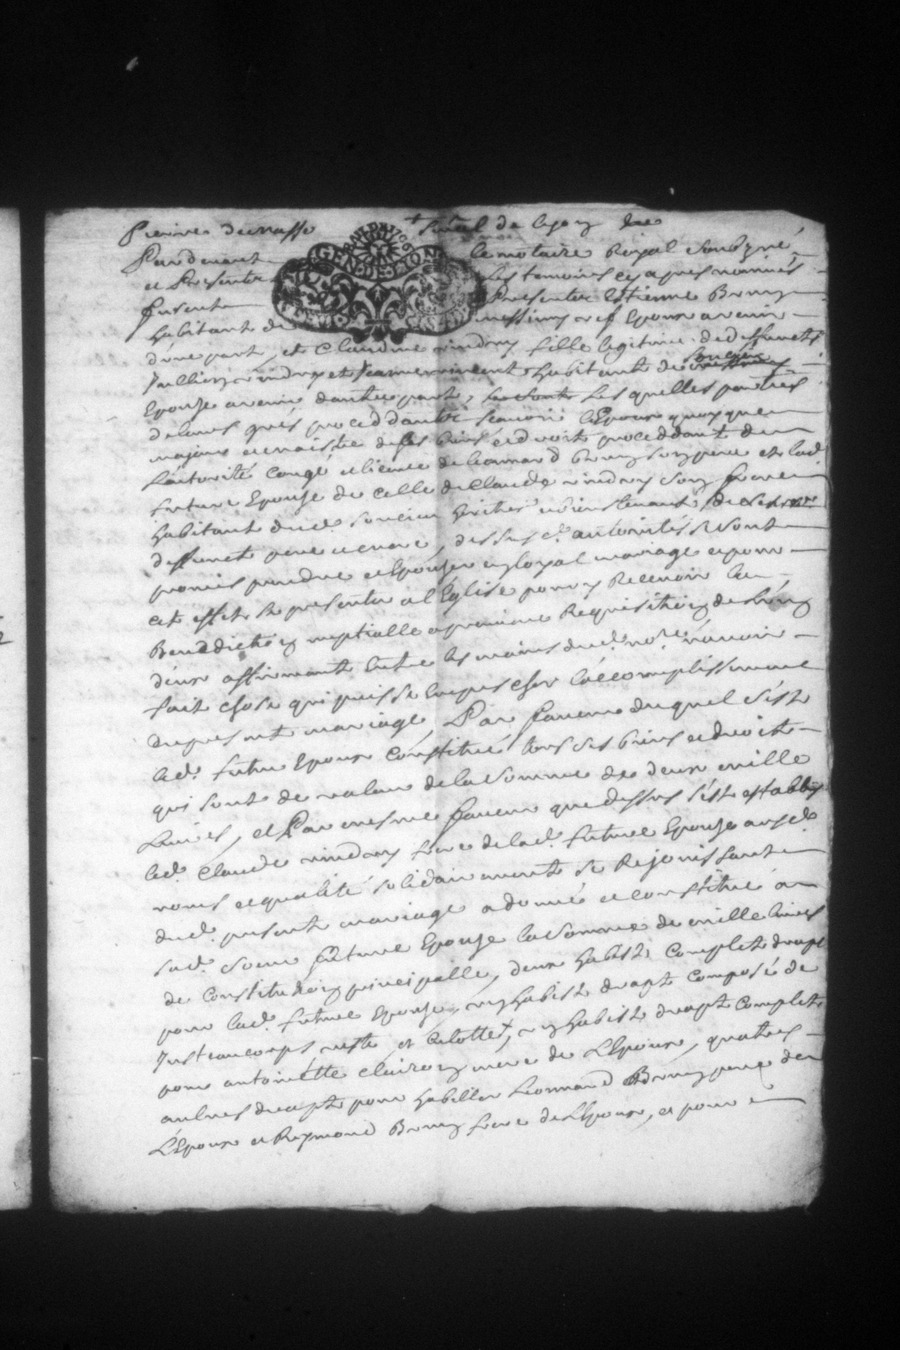 Pardevant le notaire Royal soubzné,
et Presente les temoins cy apres nommés
furent Presentes Estienne Bruny
GEN·DE·LYON
habitant de messimy cy Epoux avenir
d'une part, et Claudine vindry fille legitime de deffuncts
vindry et habitante de soucieu
Epouse avenir d'autre part, Lesquelles parties
de leurs grés proceddantes scavoir l'Epoux quoyque
majeur et maistre de ses biens et droits proceddant de
l'autorité congé et licence de Leonnard Bruny son pere et lad.
future Epouse de celle de Claude vindry son frere
habitant dud. soucieu heritier
deffunct pere et mere, dessus d. autorités se sont
promis prendre et Epouser en loyal mariage et pour
cet effet se presenter a l'Eglise pour y Recevoir la
Benediction nuptialle a premiere Requisition de l'un
d'eux affirmants entre les mains dud. nore. n'avoir
fait chose qui puisse empescher l'accomplissement
du present mariage, Par faveur duquel s'est
led. futur Epoux constitué tous ses biens et droits
qui sont de valeur de la somme de deux mille
Livres, et Par mesme faveur que dessus s'est estably
led. Claude vindry frere de lad. future Epouse
noms et qualité solidairement se Rejouissant
dud. present mariage a donné et constitué a
sad. soeur future Epouse la somme de mille livres
de constitution principalle, deux habits complets drapt
pour lad. future Epouse, un habist drapt composé de
Justeaucorps veste et culotte, un habist drapt complet
pour antoinette mere de l'Epoux, quatres
aulnes drapt pour habiller Leonnard Bruny pere de
l'Epoux et Reymond Bruny frere de l'Epoux, et pour